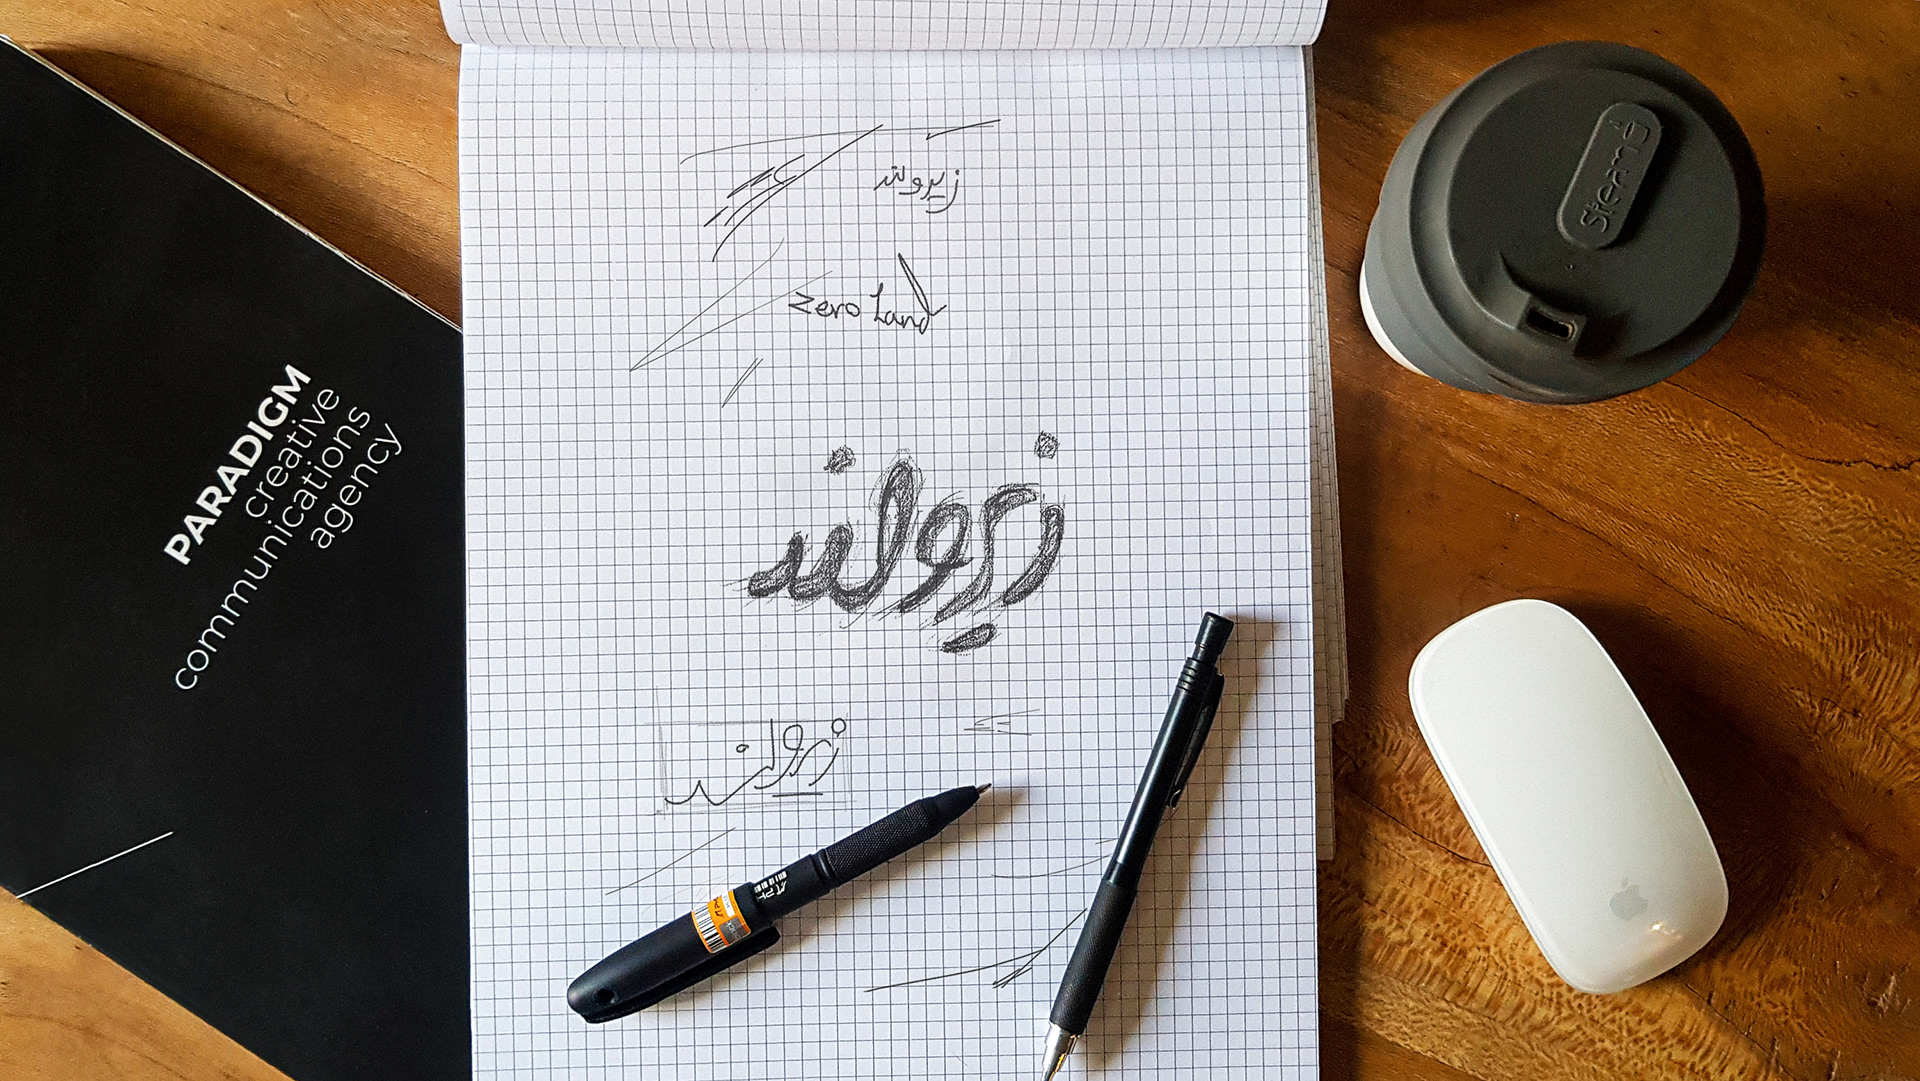 PARADIGM
creative
communications
agency
زيرولند
zero Land
زيرولند
زيرولند
Steam